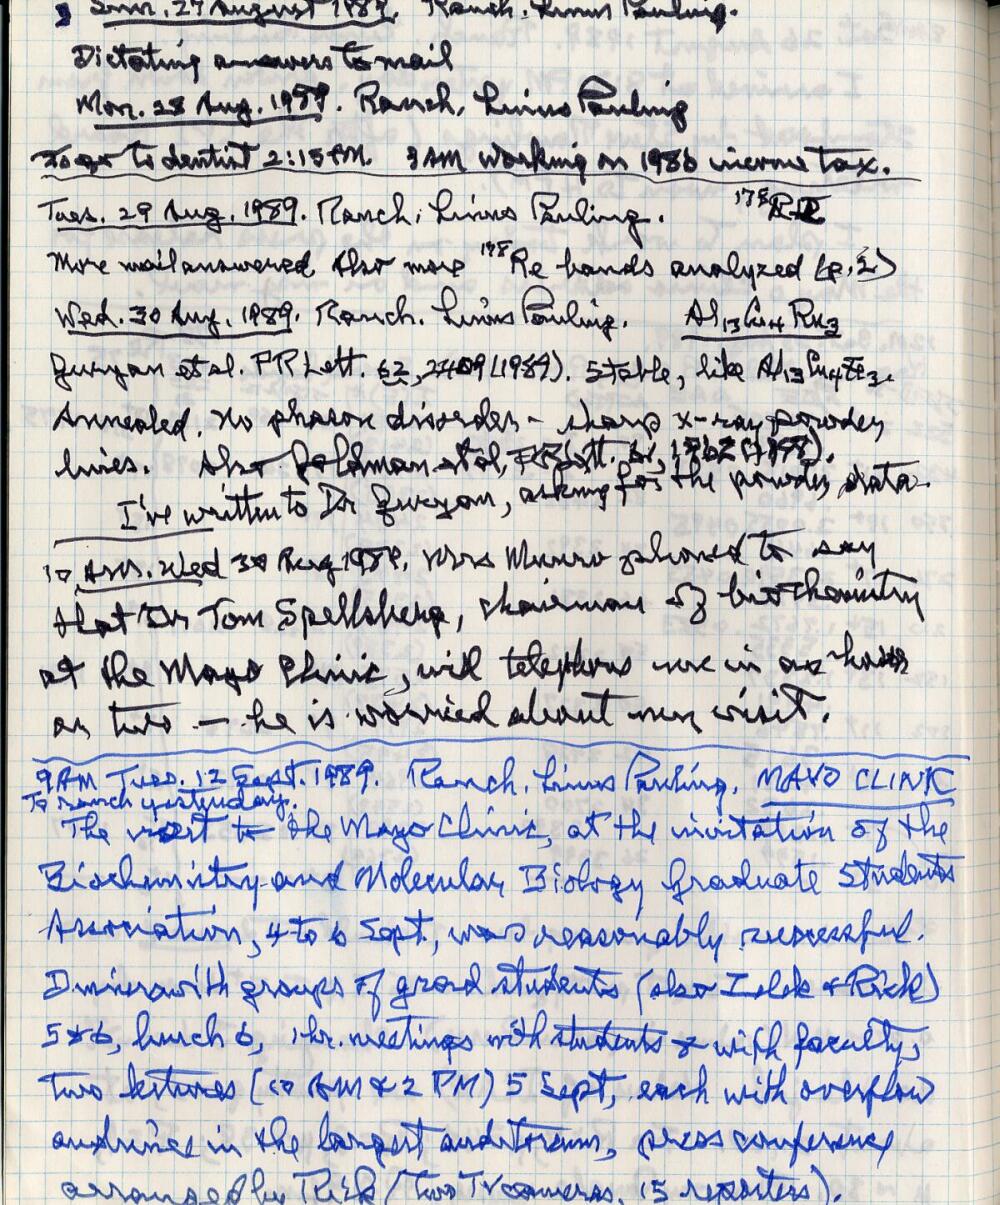 Sun. 27 August 1989. Ranch. Linus Pauling.
Dictating answers to mail
Mon. 28 Aug. 1989. Ranch, Linus Pauling
to dentist 2:15 PM. 9 AM Working on 1986 income tax.
Tues. 29 Aug. 1989. Ranch. Linus Pauling. 178Re
More mail answered. Also more 178Re bands analyzed (p. 2)
Wed. 30 Aug. 1989. Ranch. Linus Pauling. Al13Cu4Ru3
Guryan et al. PR Lett. 62, 2409 (1989). Stable, like Al13Cu4Fe3.
Annealed. No phason disorder - sharp x-ray powder
lines. Also Goldman et al, 61, 1962 (1988).
I've written to Dr Guryan, asking for the powder data.
10 AM. Wed 30 Aug 1989. Mrs Munro phoned to say
that Dr Tom Spellsberg, chairman of biochemistry
at the Mayo Clinic, will telephone me in an hour
or two — he is worried about my visit.
9 AM Tues. 12 Sept. 1989. Ranch. Linus Pauling. MAYO CLINIC
To ranch yesterday.
The visit to the Mayo Clinic, at the invitation of the
Biochemistry and Molecular Biology Graduate Students
Association, 4 to 6 Sept, was reasonably successful.
Dinner with groups of grad students (also & Rick)
5 & 6, lunch 6, 1 hr. meetings with students & with faculty,
two lectures (10 AM & 2 PM) 5 Sept, each with overflow
audience in the largest auditorium, press conference
arranged by Rick (two TV cameras, 15 reporters).